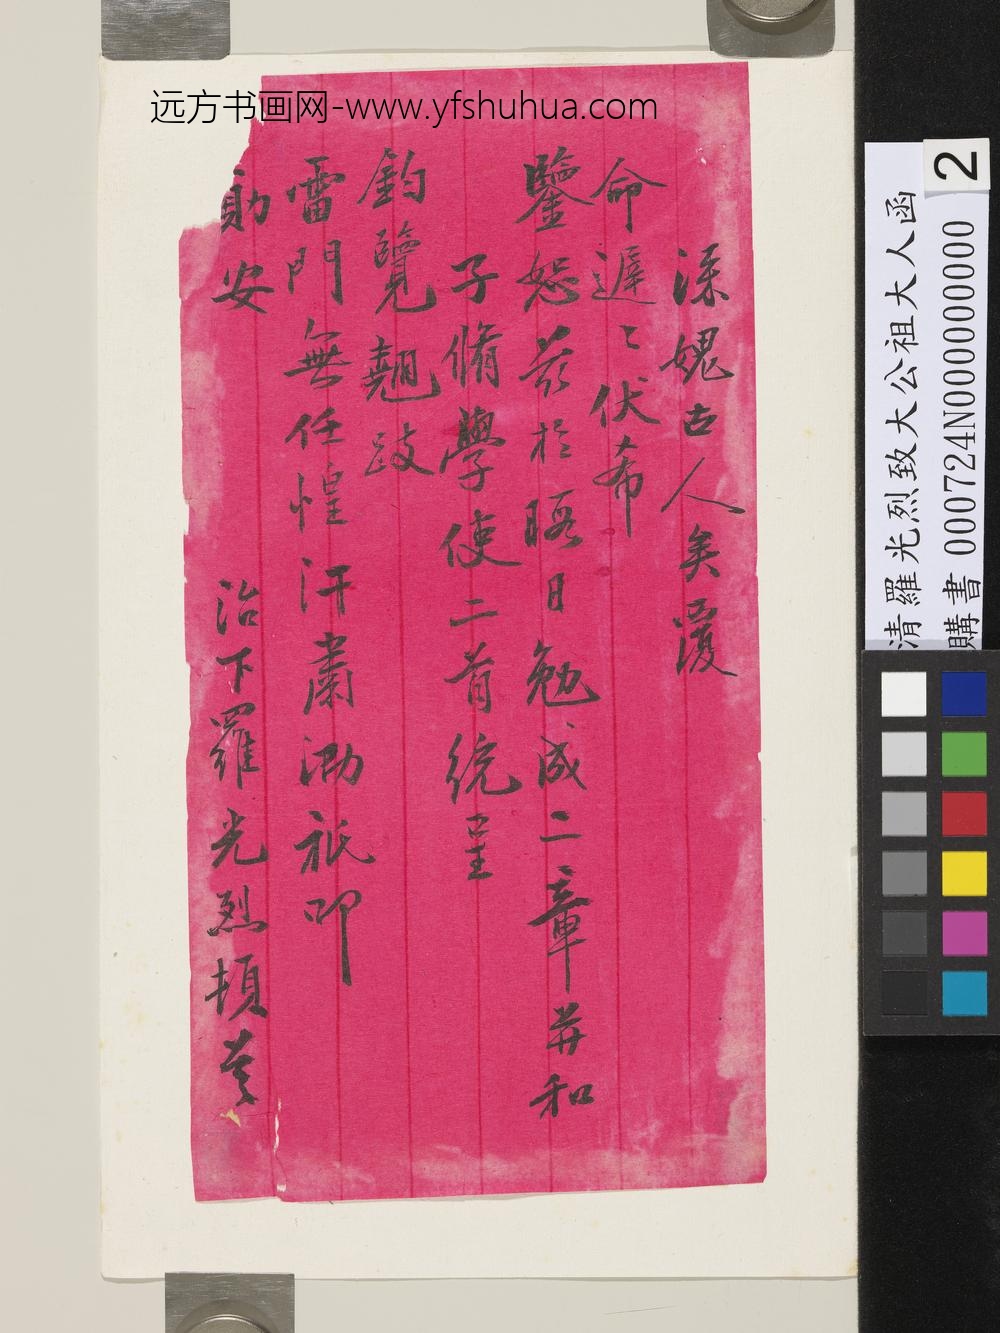 远方书画网-www.yfshuhua.com
深媿古人矣覆
命遲〻伏希
鑒恕茲於晤日勉成二章并和
子脩學使二首統呈
鈞覽翹跂
雷門無任惶汗肅泐祗叩
勛安
治下羅光烈頓首
清羅光烈致大公祖大人函
購書 000724N000000000
2